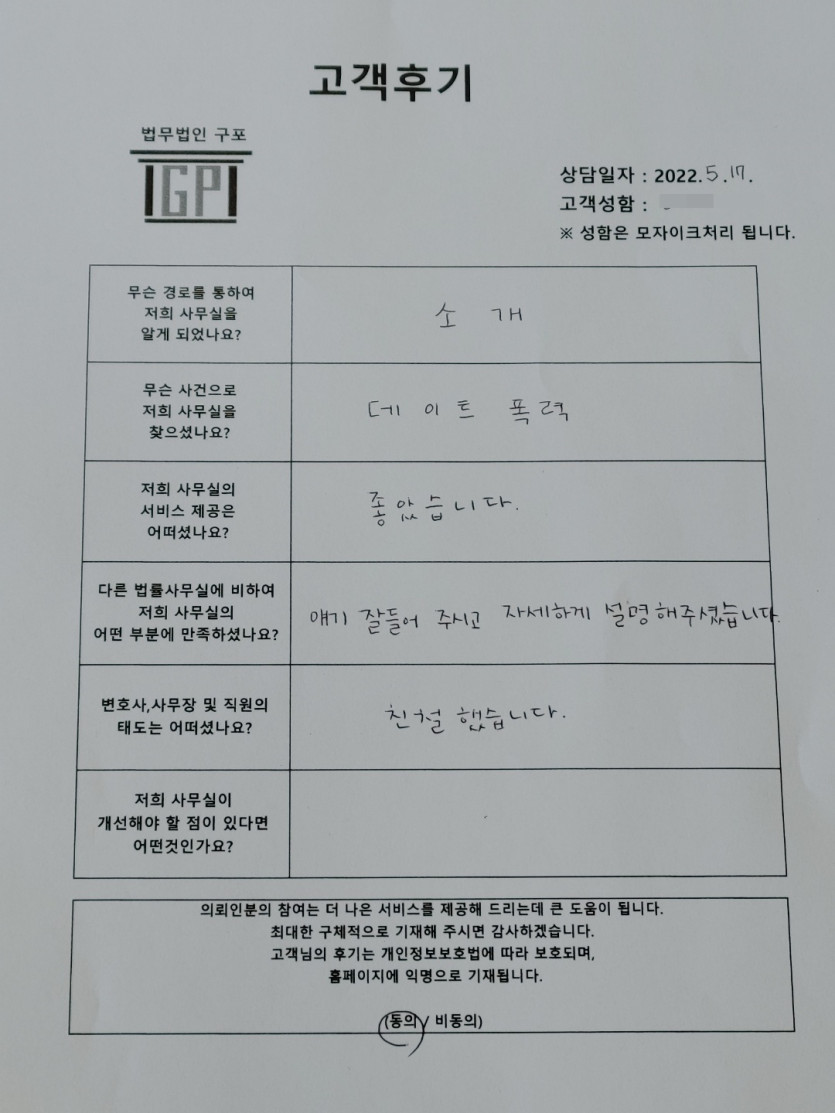 고객후기
법무법인 구포
GP
상담일자 : 2022.5.17.
고객성함 :
※ 성함은 모자이크처리 됩니다.
무슨 경로를 통하여
저희 사무실을
알게 되었나요?
소 개
무슨 사건으로
저희 사무실을
찾으셨나요?
데 이 트 폭 력
저희 사무실의
서비스 제공은
어떠셨나요?
좋았습니다.
다른 법률사무실에 비하여
저희 사무실의
어떤 부분에 만족하셨나요?
얘기 잘들어 주시고 자세하게 설명해주셨습니다.
변호사,사무장 및 직원의
태도는 어떠셨나요?
친철 했습니다.
저희 사무실이
개선해야 할 점이 있다면
어떤것인가요?
의뢰인분의 참여는 더 나은 서비스를 제공해 드리는데 큰 도움이 됩니다.
최대한 구체적으로 기재해 주시면 감사하겠습니다.
고객님의 후기는 개인정보보호법에 따라 보호되며,
홈페이지에 익명으로 기재됩니다.
(동의 / 비동의)